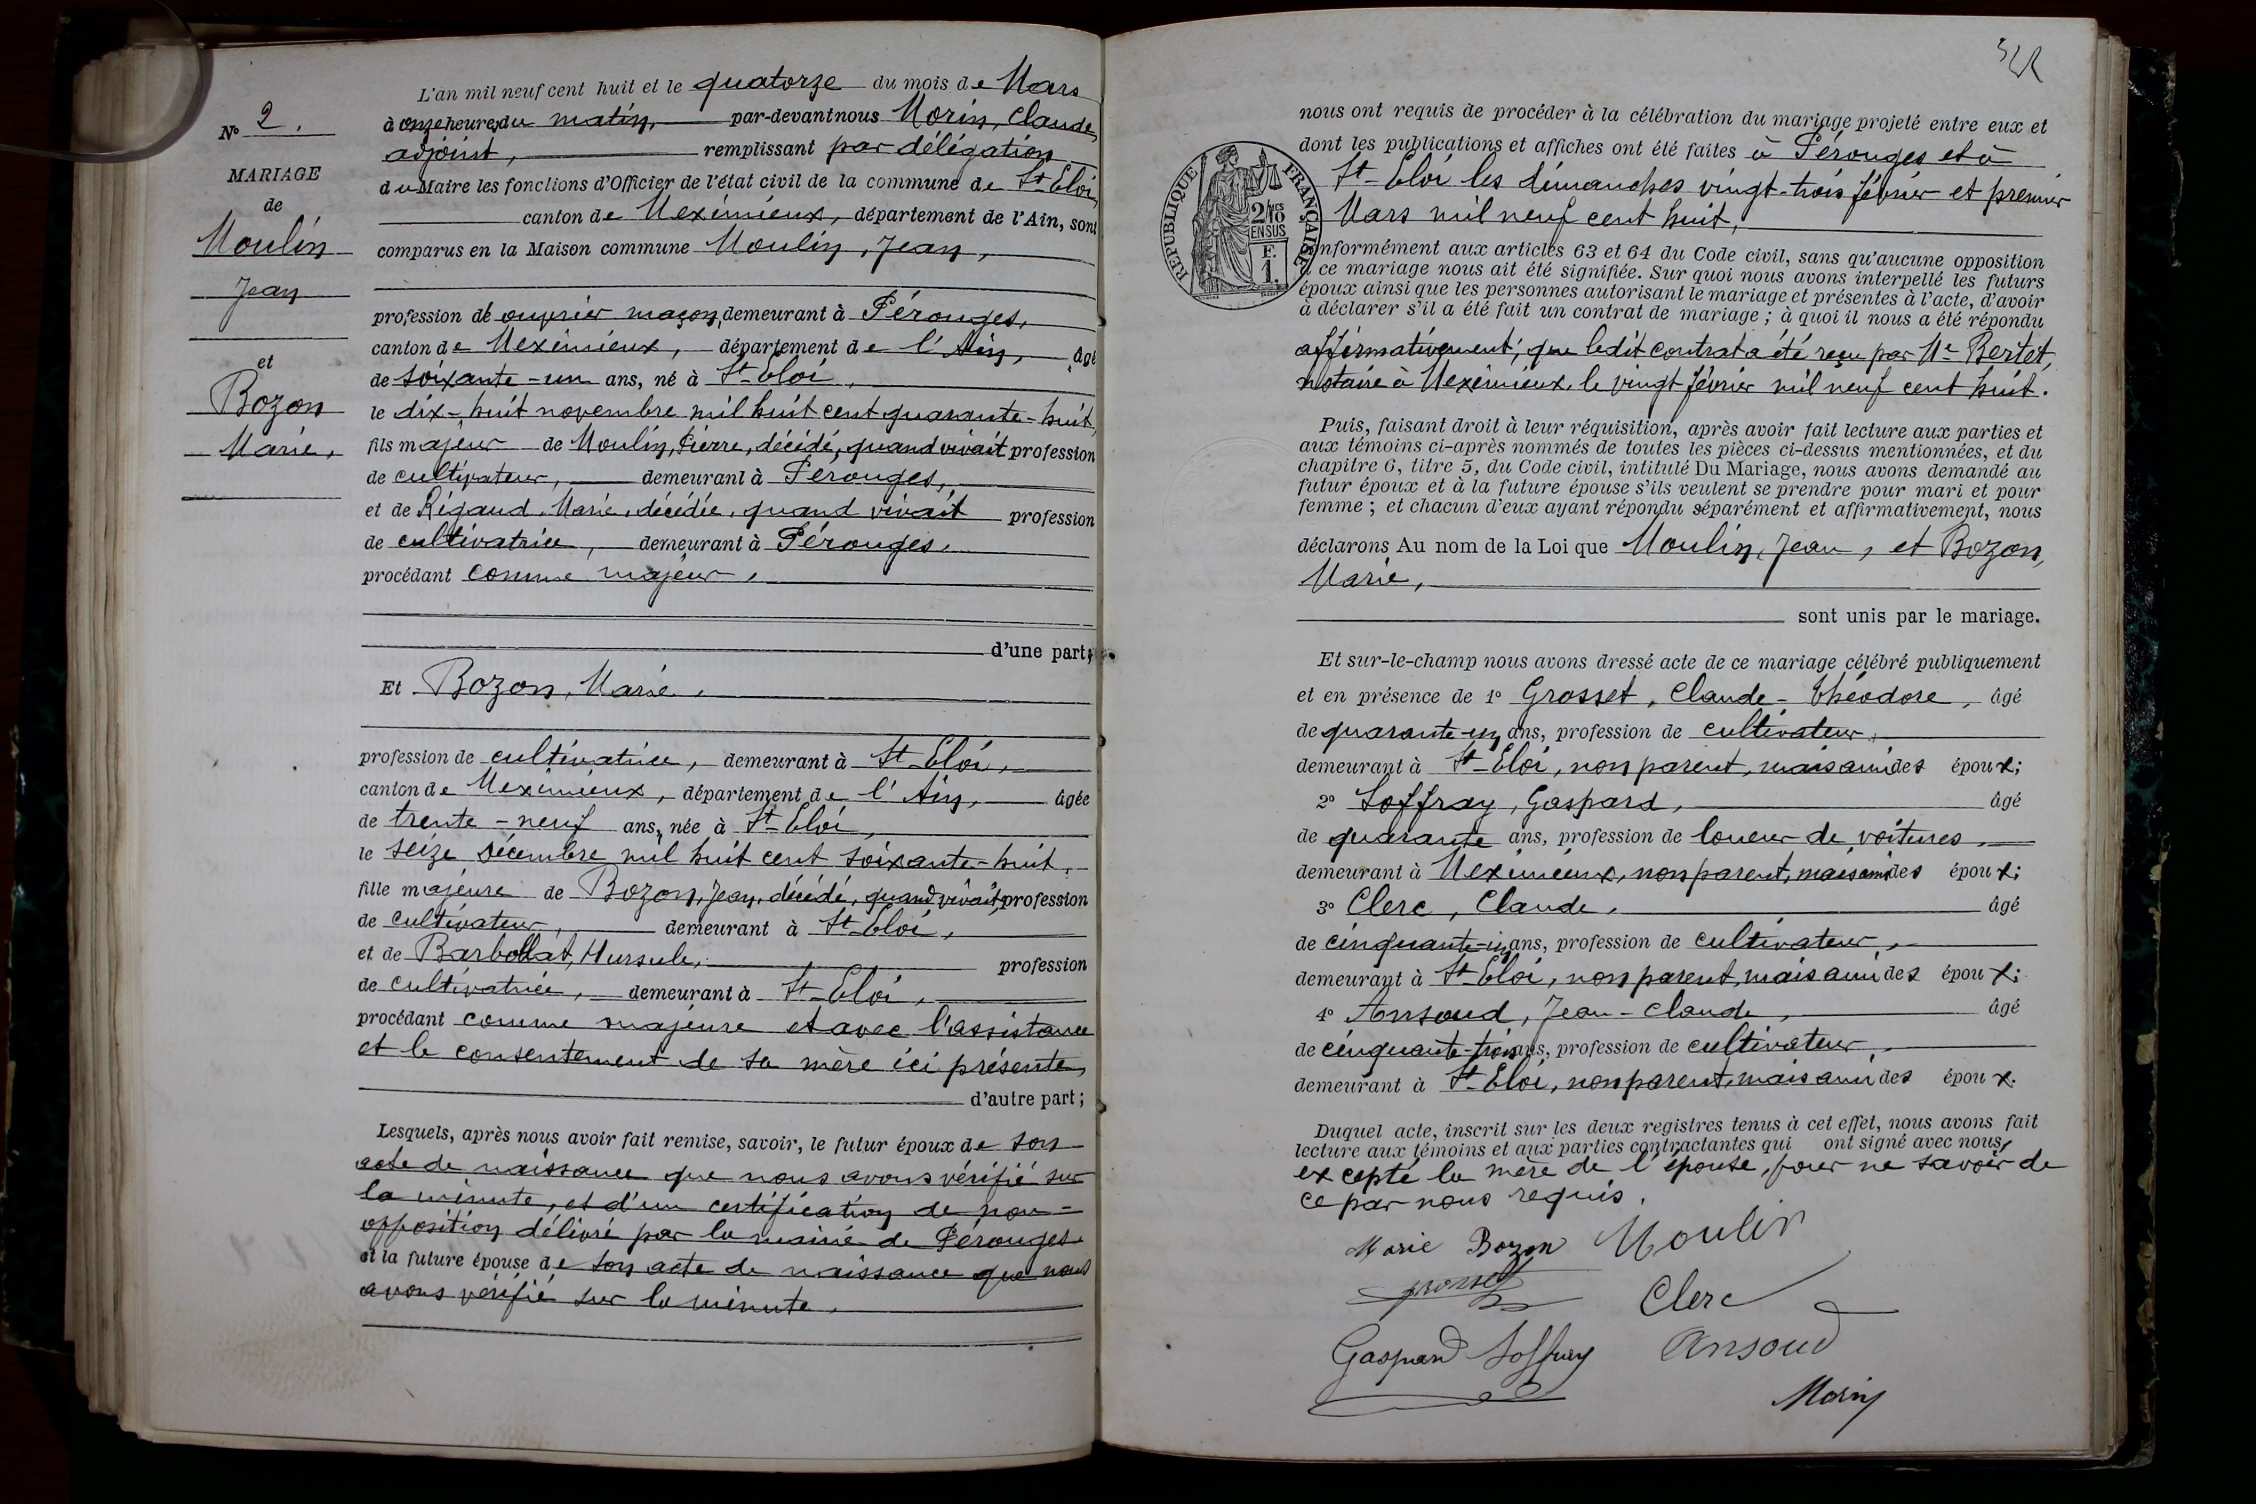 L'an mil neuf cent huit et le quatorze du mois de Mars
à onze heures du matin, par-devant nous Morin, Claude,
adjoint, remplissant par délégation
du Maire les fonctions d'Officier de l'état civil de la commune de St-Eloi,
canton de Meximieux, département de l'Ain, sont
comparus en la Maison commune Moulin, Jean,
profession de ouvrier maçon, demeurant à Pérouges,
canton de Meximieux, département de l'Ain, âgé
de soixante-un ans, né à St-Eloi,
le dix-huit novembre mil huit cent quarante-huit,
fils majeur de Moulin, Pierre, décédé, quand vivait profession
de cultivateur, demeurant à Pérouges,
et de Rigaud, Marie, décédée, quand vivait profession
de cultivatrice, demeurant à Pérouges,
procédant comme majeur,
d'une part;
Et Bozon, Marie,
profession de cultivatrice, demeurant à St-Eloi,
canton de Meximieux, département de l'Ain, âgée
de trente-neuf ans, née à St-Eloi,
le seize décembre mil huit cent soixante-huit,
fille majeure de Bozon, Jean, décédé, quand vivait, profession
de cultivateur, demeurant à St-Eloi,
et de Barbollat, Hursule, profession
de cultivatrice, demeurant à St-Eloi,
procédant comme majeure et avec l'assistance
et le consentement de sa mère ici présente,
d'autre part;
Lesquels, après nous avoir fait remise, savoir, le futur époux de son
acte de naissance que nous avons vérifié sur
la minute, et d'un certification de non-
opposition délivré par la mairie de Pérouges.
et la future épouse de son acte de naissance que nous
avons vérifié sur la minute.
No 2.
MARIAGE
de
Moulin
Jean
et
Bozon
Marie,
nous ont requis de procéder à la célébration du mariage projeté entre eux et
dont les publications et affiches ont été faites à Pérouges et à
St-Eloi les dimanches vingt-trois février et premier
Mars mil neuf cent huit,
RÉPUBLIQUE FRANÇAISE
2/10 ES
EN SUS
F.
1.
nformément aux articles 63 et 64 du Code civil, sans qu'aucune opposition
à ce mariage nous ait été signifiée. Sur quoi nous avons interpellé les futurs
époux ainsi que les personnes autorisant le mariage et présentes à l'acte, d'avoir
à déclarer s'il a été fait un contrat de mariage; à quoi il nous a été répondu
affirmativement; que ledit contrat a été reçu par Me Bertet,
notaire à Meximieux, le vingt février mil neuf cent huit.
Puis, faisant droit à leur réquisition, après avoir fait lecture aux parties et
aux témoins ci-après nommés de toutes les pièces ci-dessus mentionnées, et du
chapitre 6, titre 5, du Code civil, intitulé Du Mariage, nous avons demandé au
futur époux et à la future épouse s'ils veulent se prendre pour mari et pour
femme; et chacun d'eux ayant répondu séparément et affirmativement, nous
déclarons Au nom de la Loi que Moulin, Jean, et Bozon,
Marie,
sont unis par le mariage.
Et sur-le-champ nous avons dressé acte de ce mariage célébré publiquement
et en présence de 1o Grosset, Claude-Théodore, âgé
de quarante-un ans, profession de cultivateur,
demeurant à St-Eloi, non parent, mais ami des époux;
2o Soffray, Gaspard, âgé
de quarante ans, profession de loueur de voitures,
demeurant à Meximieux, non parent, mais ami des époux;
3o Clerc, Claude, âgé
de cinquante-un ans, profession de cultivateur,
demeurant à St-Eloi, non parent, mais ami des époux;
4o Ansoud, Jean-Claude, âgé
de cinquante-trois ans, profession de cultivateur,
demeurant à St-Eloi, non parent, mais ami des époux.
Duquel acte, inscrit sur les deux registres tenus à cet effet, nous avons fait
lecture aux témoins et aux parties contractantes qui ont signé avec nous,
excepté la mère de l'épouse, pour ne savoir de
ce par nous requis.
Marie Bozon Moulin
Grosset Clerc
Gaspard Soffray Ansoud
Morin